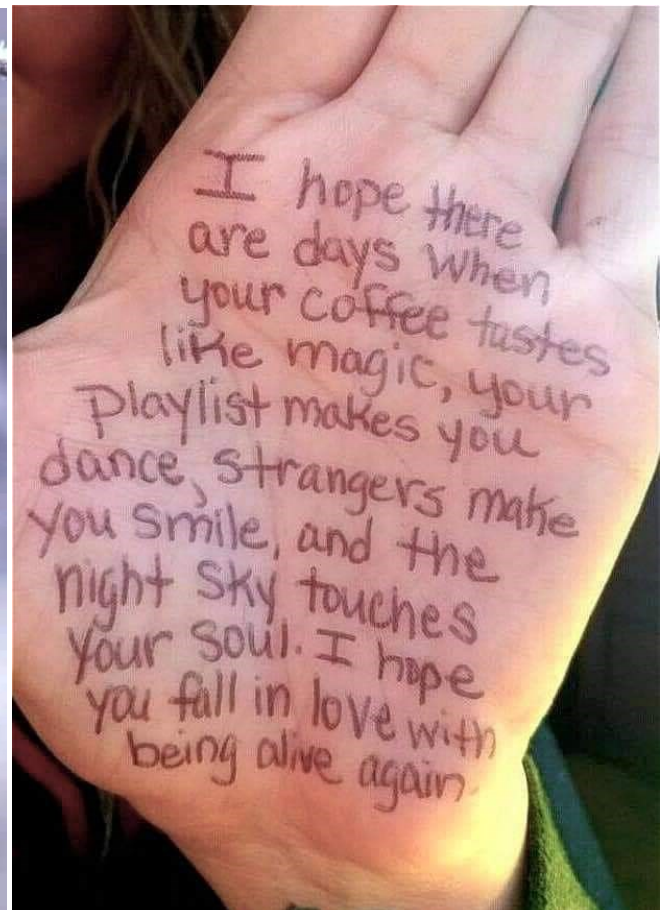 I hope there
are days when
your coffee tastes
like magic, your
Playlist makes you
dance, strangers make
you smile, and the
night sky touches
your soul. I hope
you fall in love with
being alive again.